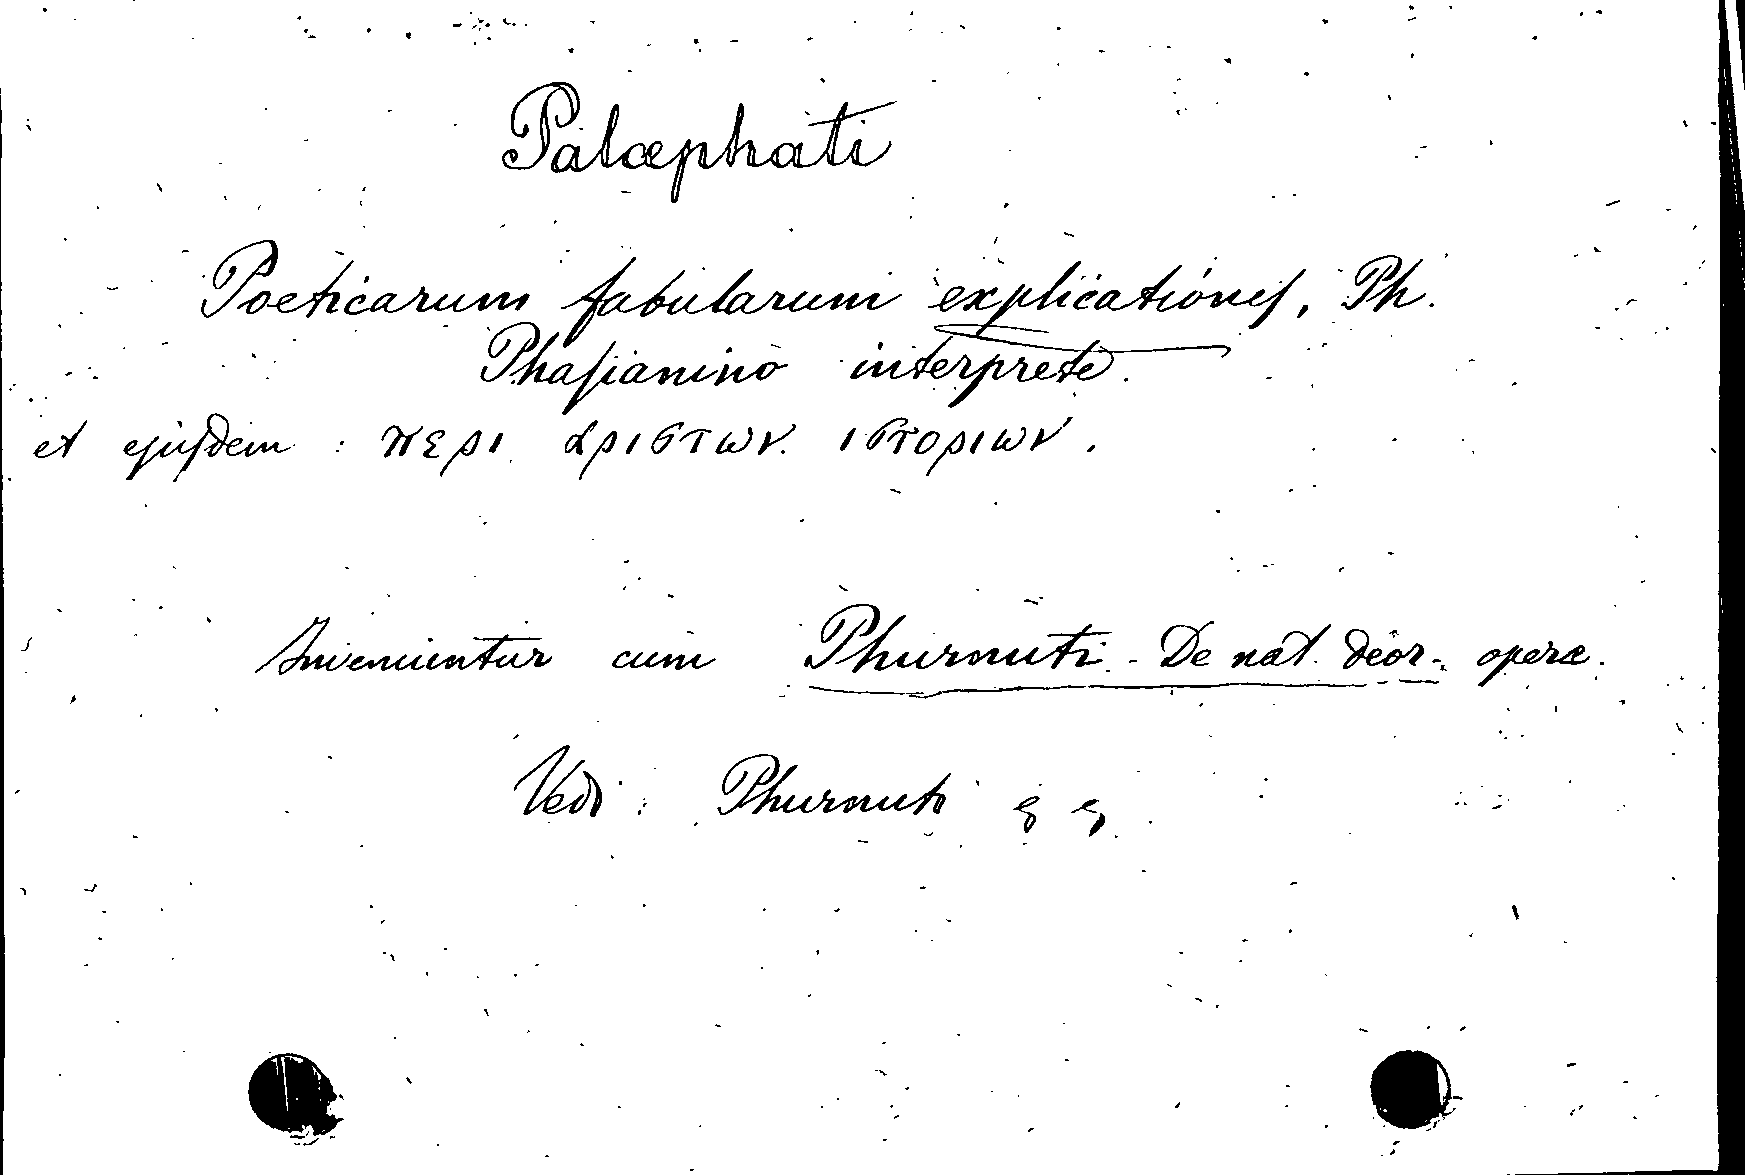 Palæphati
Poeticarum fabularum explicationes, Ph.
Phasianino interprete.
et ejusdem : περι αριστων ιστοριων.
Inveniuntur cum Phurnuti - De nat. deor. - opera.
Vedi : Phurnuti